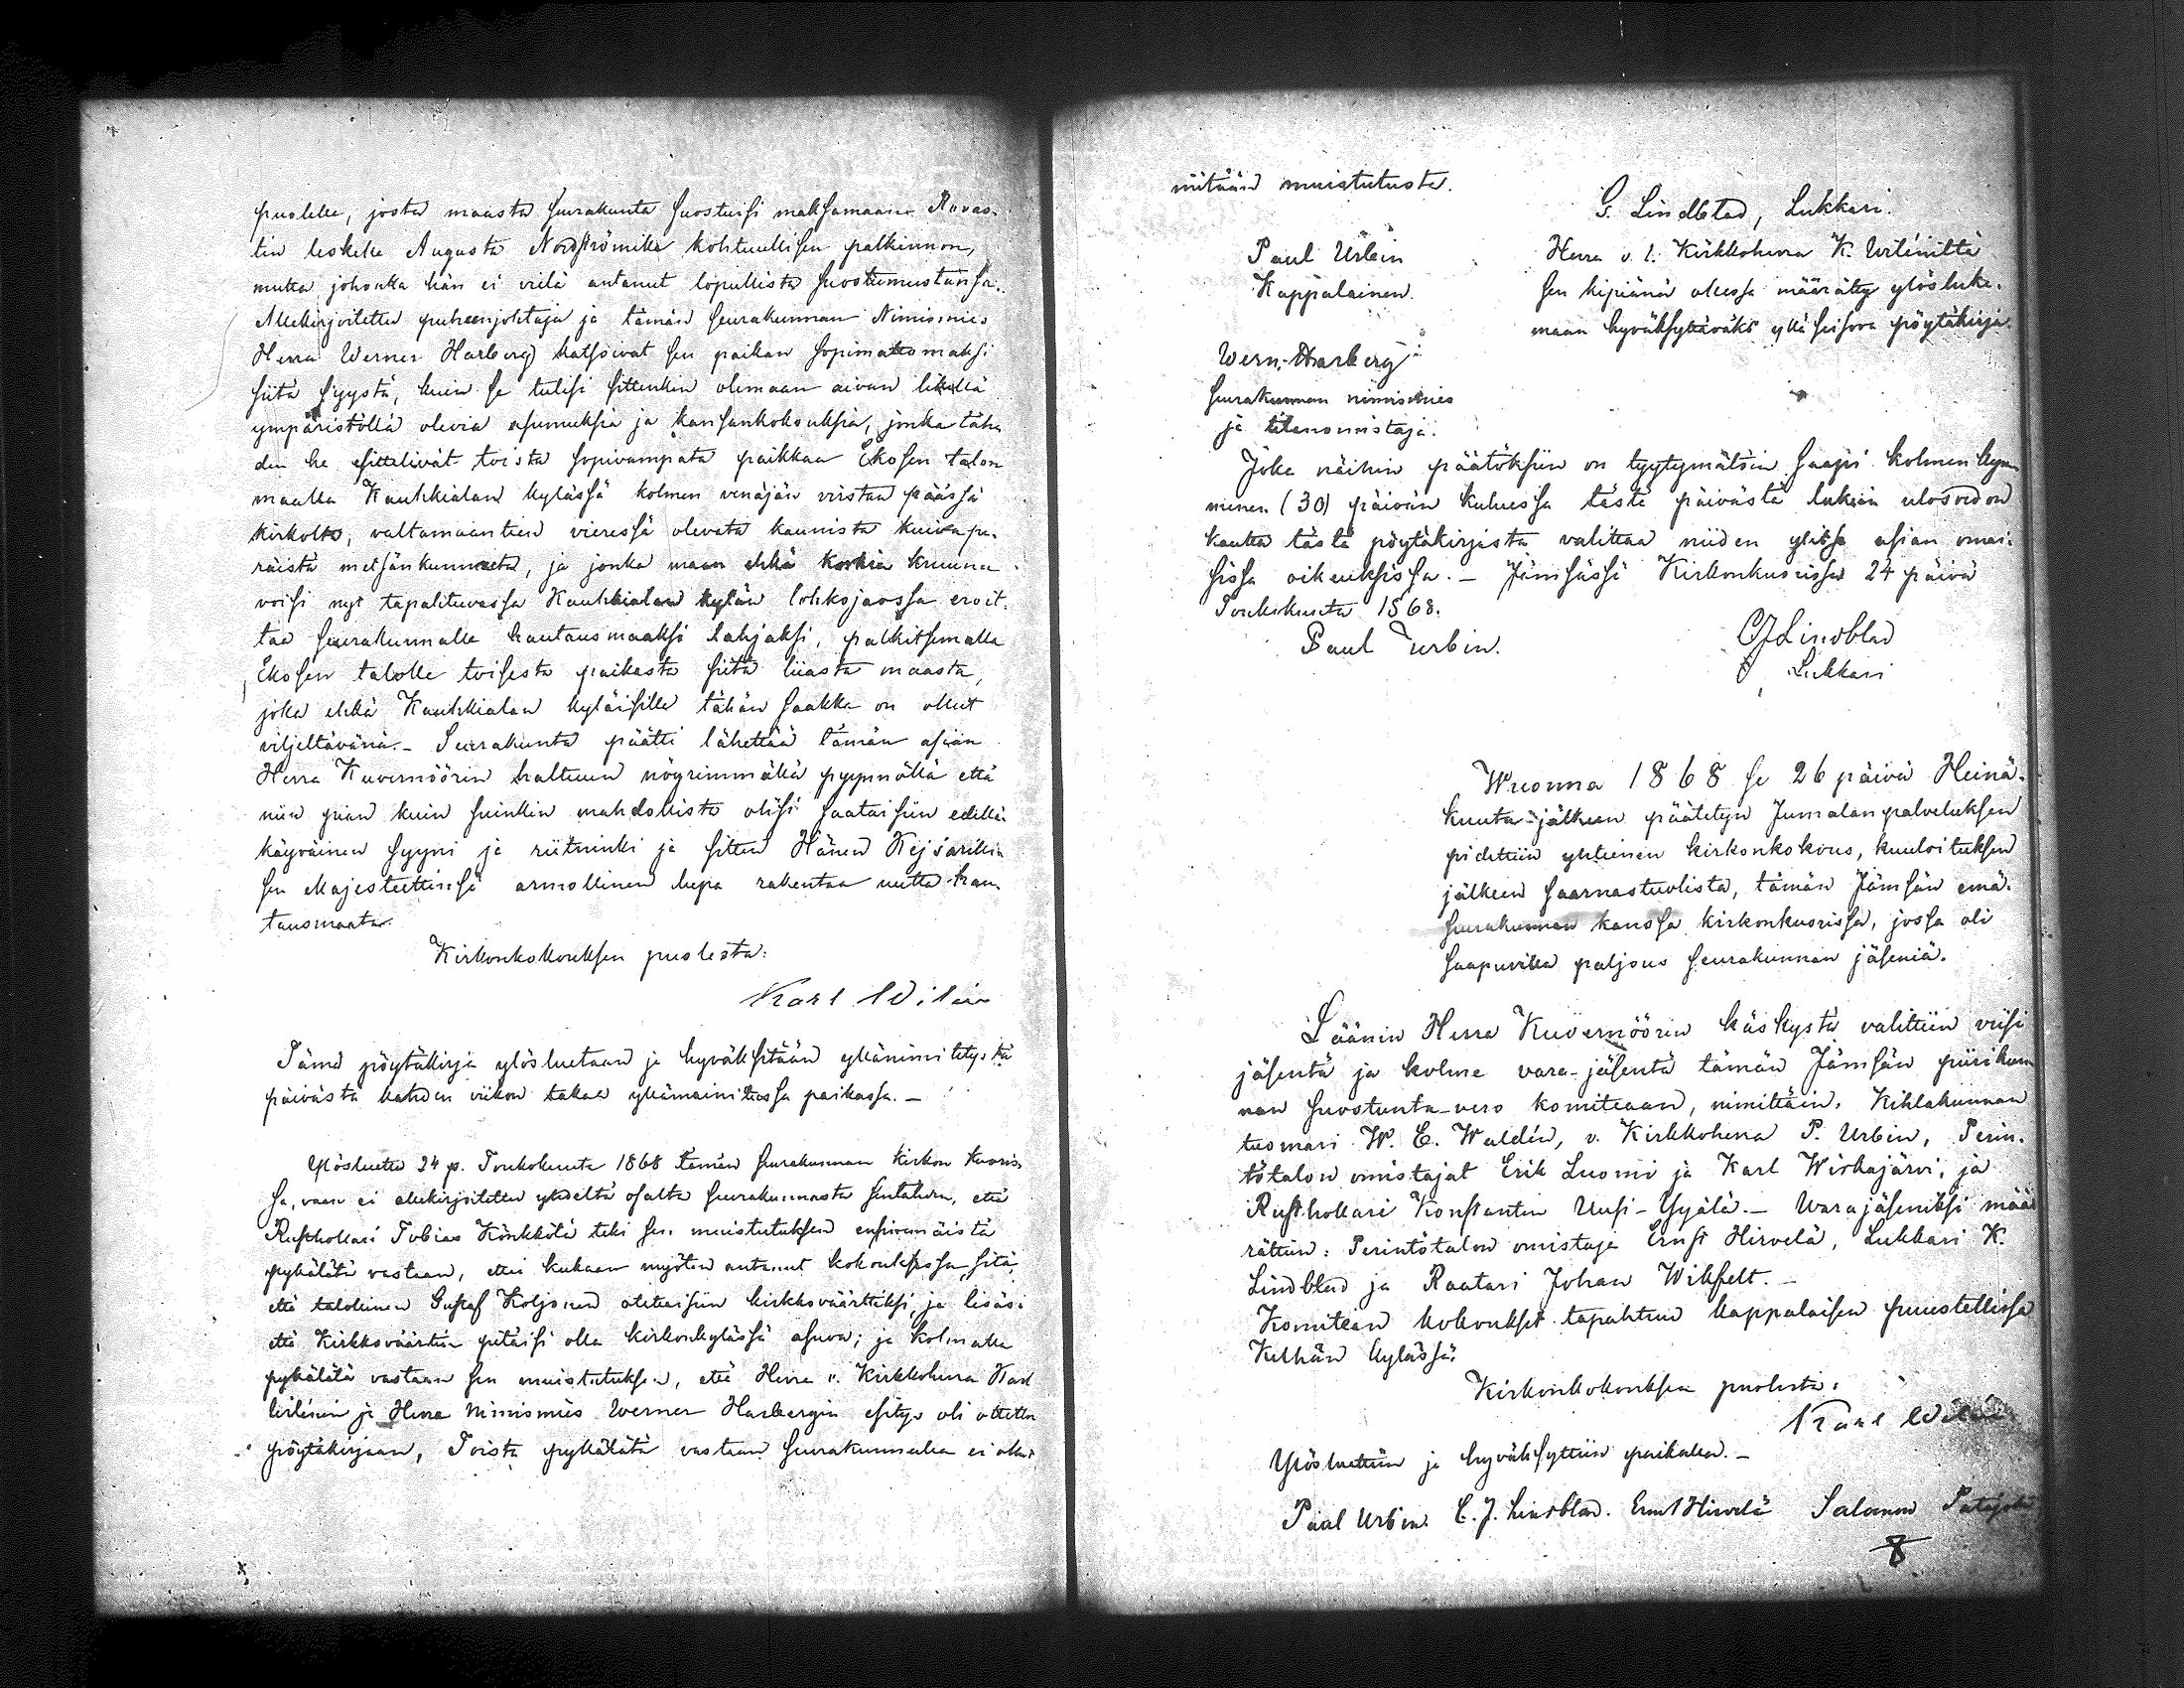 puolelle, josta maasta seurakunta suostuisi maksamaan Rovas-
tin leskelle Augusta Nordströmille kohtuullisen palkinnon,
mutta johonka hän ei vielä antanut lopullista suostumustansa.
Allekirjoitettu puheenjohtaja ja tämän seurakunnan Nimismies
Herra Werner Harberg katsoivat sen paikan sopimattomaksi
siitä syystä, kuin se tulisi sittenkin olemaan aivan likellä
ympäristöllä olevia asumuksia ja kansankokouksia, jonka täh-
den he esittelivät toista sopivampata paikkaa Ekosen talon
maalla Kaukkialan kylässä kolmen venäjän virstan päässä
kirkolta, valtamaantien vieressä olevata kaunista kuivape-
räistä metsänkunnasta, ja jonka maan ehkä korkia kruunu
voisi nyt tapahtuvassa Kaukkialan kylän lohkojaossa eroit-
taa seurakunnalle hautausmaaksi lahjaksi, palkitsemalla
Ekosen talolle toisesta paikasta siitä liiasta maasta,
joka ehkä Kaukkialan kyläisille tähän saakka on ollut
viljeltävänä. - Seurakunta päätti lähettää tämän asian
Herra Kuvernöörin haltuun nöyrimmällä pyynnöllä että
niin pian kuin suinkin mahdollista olisi saataisiin edellä-
käyväinen syyni ja riitninki ja sitten Hänen Kejsarilli-
sen Majesteettinsä armollinen lupa rakentaa uutta hau-
tausmaata.
Kirkonkokouksen puolesta:
Karl Wilén
Tämä pöytäkirja ylösluetaan ja hyväksytään ylläinimitetystä
päivästä kahden viikon takaa yllämainitussa paikassa. -
Ylösluettu 24 p. Toukokuuta 1868 tämän seurakunnan kirkon kuoris-
sa, vaan ei allekirjoitettu yhdeltä osalta seurakunnasta sentähden, että
Rusthollari Tobias Könkkölä teki sen muistutuksen ensimmäistä
pykälätä vastaan, ettei kukaan myöten antanut kokouksessa sitä,
että talollinen Gustaf Koljonen otettaisiin kirkkoväärtiksi, ja lisäsi
että Kirkkoväärtin pitäisi olla kirkonkylässä asuva; ja kolmatta
pykälätä vastaan sen muistutuksen, että Herra v. Kirkkoherra Karl
Wilénin ja Herra Nimismies Werner Harbergin esitys oli otettu
pöytäkirjaan, Toista pykälätä vastaan seurakunnalla ei ollut
mitään muistutusta.
G. Lindblad, Lukkari.
Paul Urbin
Kappalainen.
Herra v. t. Kirkkoherra K. Wiléniltä
sen kipiänä ollessa määrätty ylösluke-
maan hyväksyttäväksi yllä seisova pöytäkirja.
Wern. Harberg
seurakunnan nimismies
ja tilanomistaja.
Joka näihin päätöksiin on tyytymätöin saapi kolmen kym-
menen (30) päivän kuluessa tästä päivästä lukein ulosvedon
kautta tästä pöytäkirjasta valittaa niiden ylitse asian omai-
sissa oikeuksissa. - Jämsässä Kirkonkuorissa 24 päivä
Toukokuuta 1868.
Paul Urbin.
C J Lindblad
Lukkari
Wuonna 1868 se 26 päivä Heinä-
kuuta jälkeen päätetyn Jumalanpalveluksen
pidettiin yhteinen kirkonkokous, kuuloituksen
jälkeen saarnastuolista, tämän Jämsän emä-
seurakunnan kanssa kirkonkuorissa, jossa oli
saapuvilla paljous seurakunnan jäseniä.
Läänin Herra Kuvernöörin käskystä valittiin viisi
jäsentä ja kolme vara-jäsentä tämän Jämsän piirikun-
nan suostunta-vero komiteaan, nimittäin: Kihlakunnan
tuomari W. E. Waldén, v. Kirkkoherra P. Urbin, Perin-
tötalon omistajat Erik Luomi ja Karl Wirkajärvi; ja
Rusthollari Konstantin Uusi-Yijälä. - Warajäseniksi mää-
rättiin: Perintötalon omistaja Ernst Hirvelä, Lukkari K.
Lindblad ja Raatari Johan Wikfelt. -
Komitean kokoukset tapahtuu kappalaisen puustellissa
Kelhän kylässä.
Kirkonkokouksen puolesta:
Karl Wilén
Ylösluettiin ja hyväksyttiin paikalla. -
Paul Urbin. C. J. Lindblad. Ernst Hirvelä Salomon
8